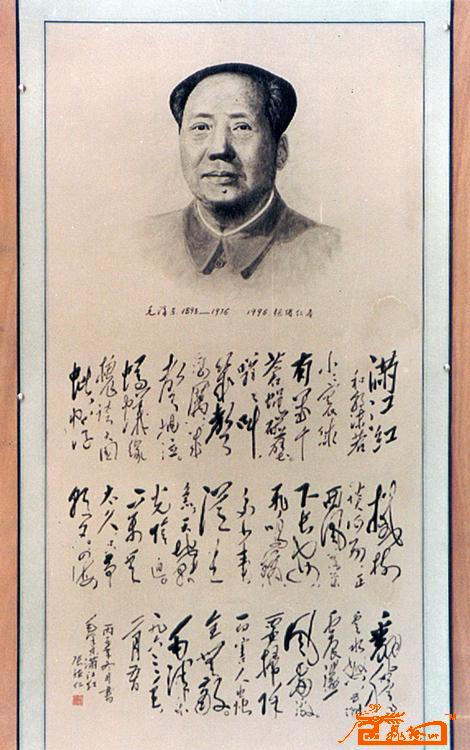 毛泽东 1893—1976 1996
满江红
和郭沫若
小小寰球
有几个
苍蝇碰壁
嗡嗡叫
几声
凄厉
几声抽泣
蚂蚁缘
槐夸大国
蚍蜉
撼树
谈何易正
西风落叶
下长安
飞鸣镝
多少事
从来
急天地转
光阴迫
一万年
太久只争
朝夕四海
翻腾
云水怒五洲
震荡
风雷激
要扫除
一切害人虫
全无敌
毛泽东
一九六三年
一月九日
毛主席满江红